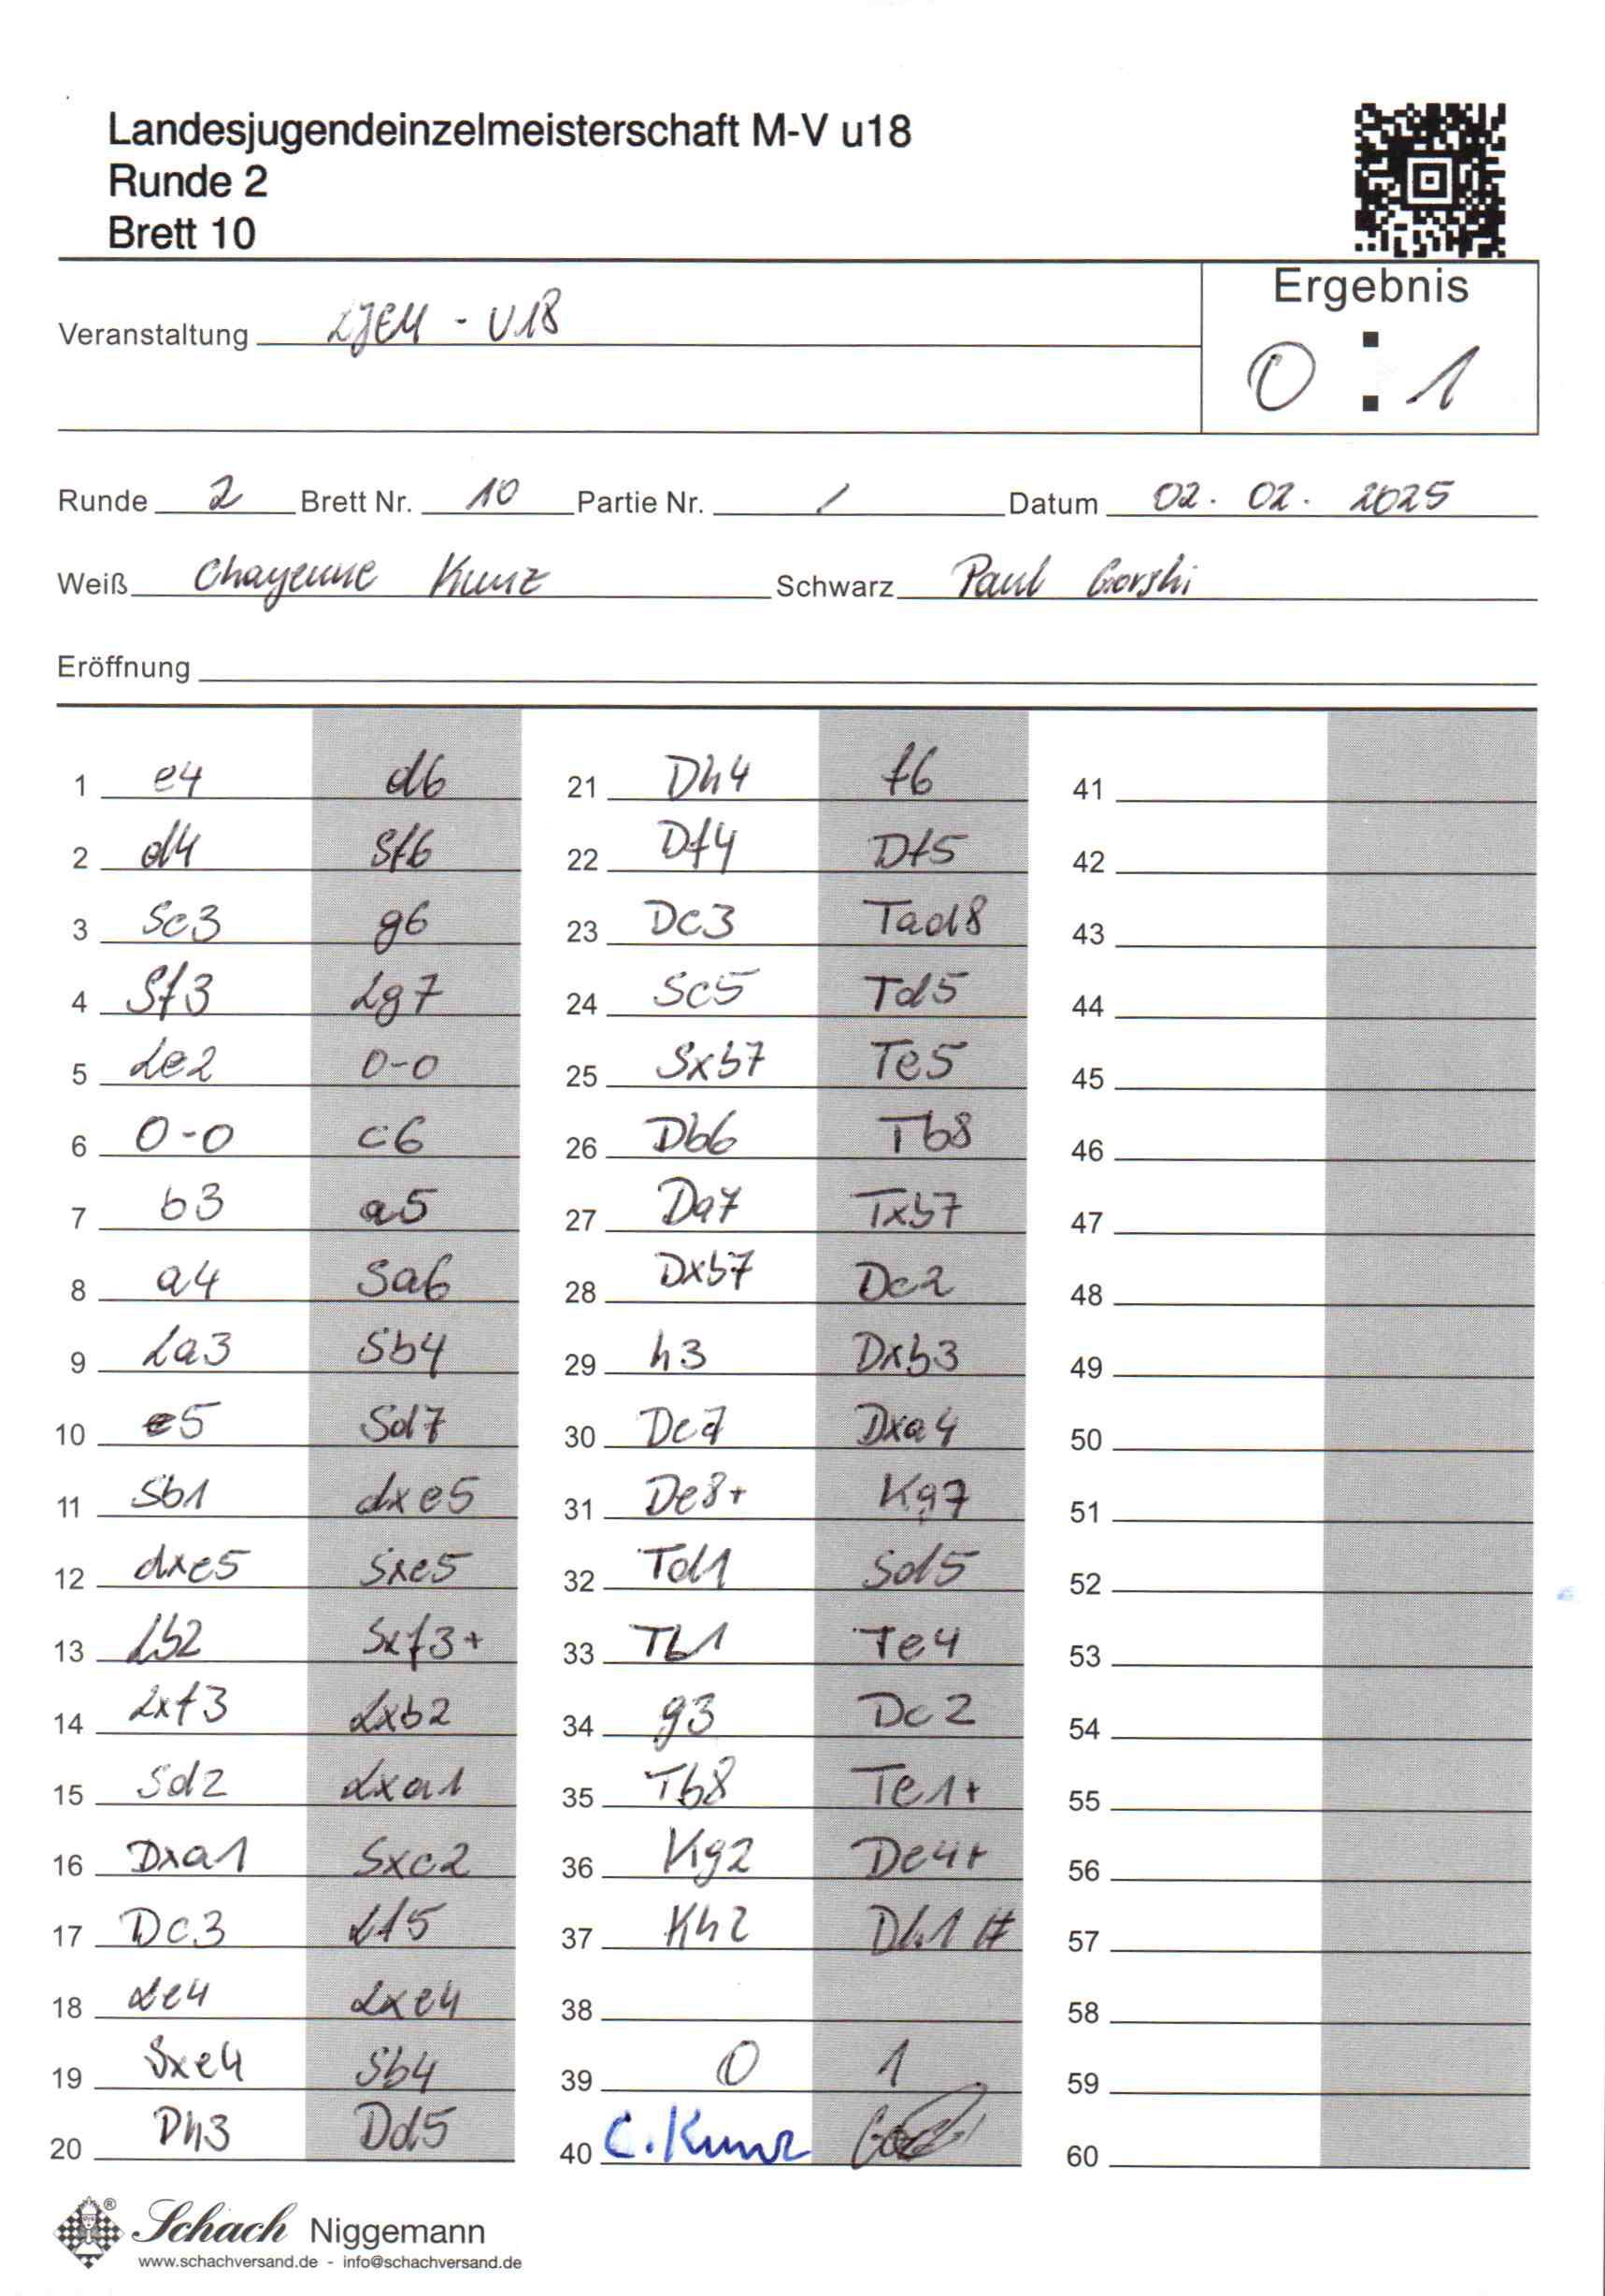 Landesjugendeinzelmeisterschaft M-V u18
Runde 2
Brett 10
Ergebnis
Veranstaltung LJEM - U18
0 : 1
Runde 2 Brett Nr. 10 Partie Nr. / Datum 02. 02. 2025
Weiß Chayenne Kunz Schwarz Paul Gorski
Eröffnung
1 e4 d6
2 d4 Sf6
3 Sc3 g6
4 Sf3 Lg7
5 Le2 0-0
6 0-0 c6
7 b3 a5
8 a4 Sa6
9 La3 Sb4
10 e5 Sd7
11 Sb1 dxe5
12 dxe5 Sxe5
13 Lb2 Sxf3+
14 Lxf3 Lxb2
15 Sd2 Lxa1
16 Dxa1 Sxc2
17 Dc3 Lf5
18 Le4 Lxe4
19 Sxe4 Sb4
20 Dh3 Dd5
21 Dh4 f6
22 Df4 Df5
23 Dc3 Tad8
24 Sc5 Td5
25 Sxb7 Te5
26 Db6 Tb8
27 Da7 Txb7
28 Dxb7 Dc2
29 h3 Dxb3
30 Dc7 Dxa4
31 De8+ Kg7
32 Td1 Sd5
33 Tb1 Te4
34 g3 Dc2
35 Tb8 Te1+
36 Kg2 De4+
37 Kh2 Dh1#
38
39 0 1
40 C. Kunz
41
42
43
44
45
46
47
48
49
50
51
52
53
54
55
56
57
58
59
60
Schach Niggemann
www.schachversand.de - info@schachversand.de